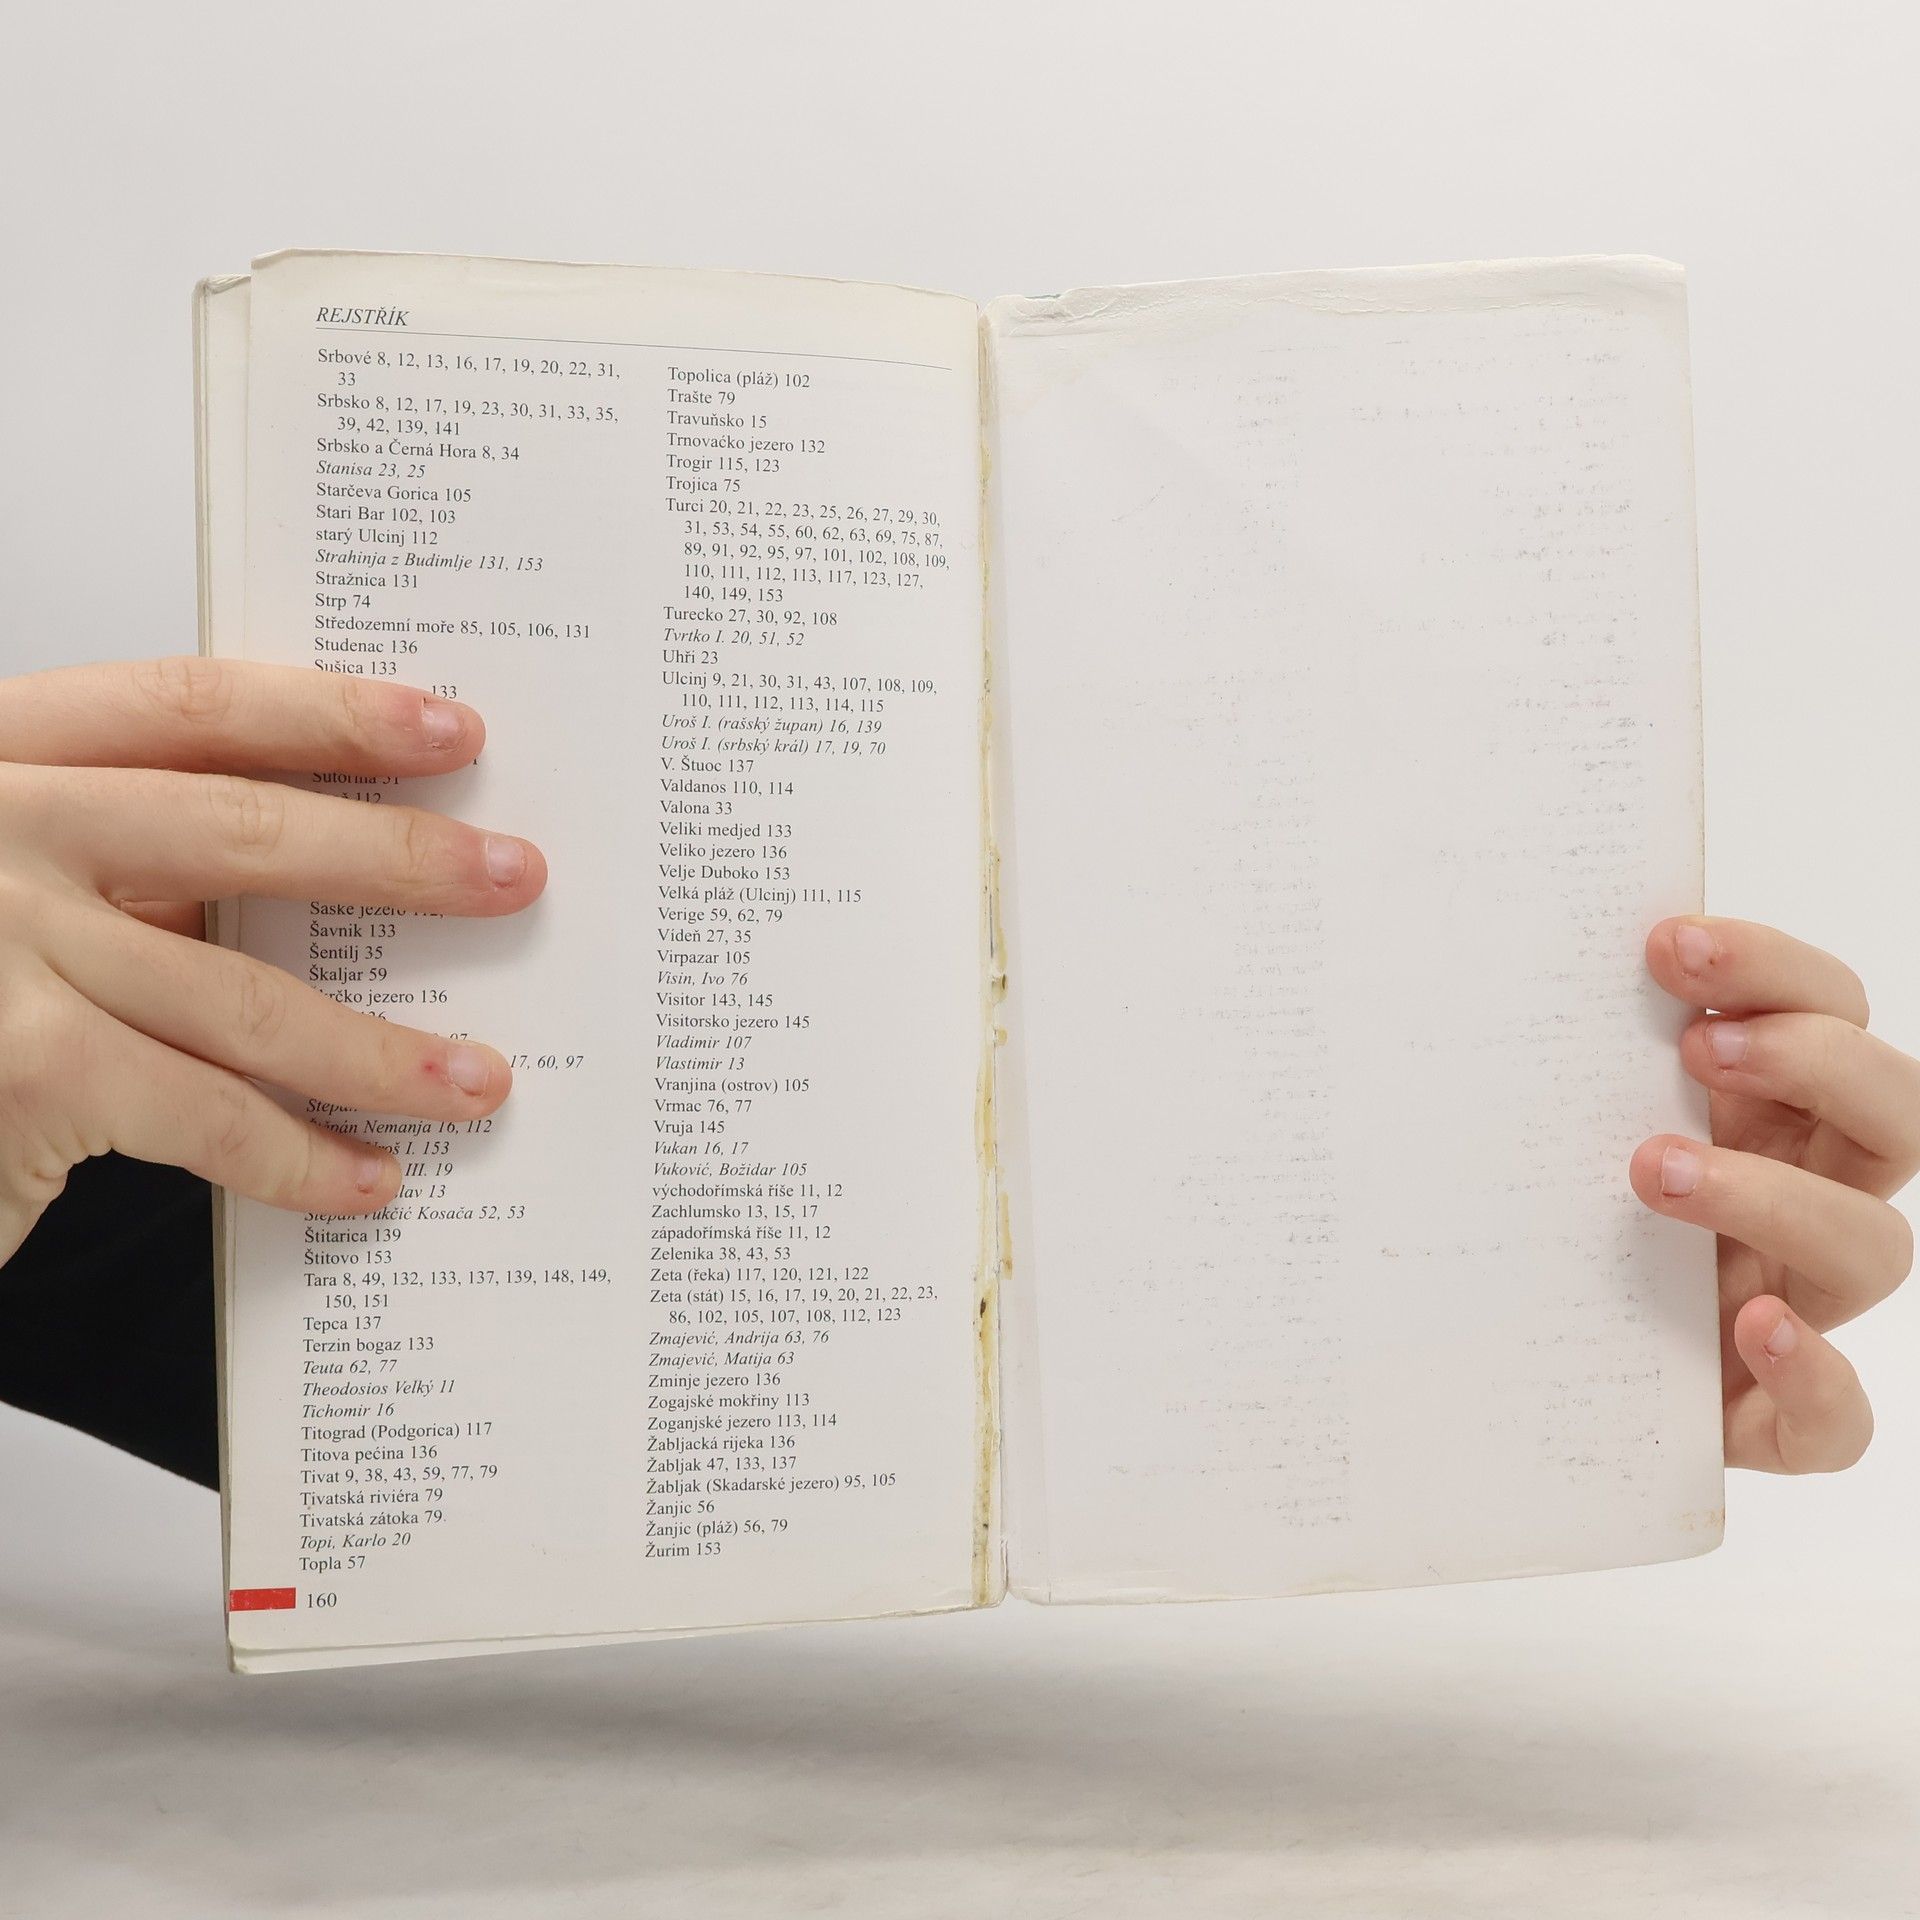 REJSTŘÍK
Srbové 8, 12, 13, 16, 17, 19, 20, 22, 31,
33
Srbsko 8, 12, 17, 19, 23, 30, 31, 33, 35,
39, 42, 139, 141
Srbsko a Černá Hora 8, 34
Stanisa 23, 25
Starčeva Gorica 105
Stari Bar 102, 103
starý Ulcinj 112
Strahinja z Budimlje 131, 153
Stražnica 131
Strp 74
Středozemní moře 85, 105, 106, 131
Studenac 136
Sušica 133
133
Sutorina 51
112
Šaske jezero 112,
Šavnik 133
Šentilj 35
Škaljar 59
Škrčko jezero 136
17, 60, 97
Štěpán Nemanja 16, 112
Uroš I. 153
III. 19
13
Štěpán Vukčić Kosača 52, 53
Štitarica 139
Štitovo 153
Tara 8, 49, 132, 133, 137, 139, 148, 149,
150, 151
Tepca 137
Terzin bogaz 133
Teuta 62, 77
Theodosios Velký 11
Tichomir 16
Titograd (Podgorica) 117
Titova pećina 136
Tivat 9, 38, 43, 59, 77, 79
Tivatská riviéra 79
Tivatská zátoka 79
Topi, Karlo 20
Topla 57
160
Topolica (pláž) 102
Trašte 79
Travuňsko 15
Trnovaćko jezero 132
Trogir 115, 123
Trojica 75
Turci 20, 21, 22, 23, 25, 26, 27, 29, 30,
31, 53, 54, 55, 60, 62, 63, 69, 75, 87,
89, 91, 92, 95, 97, 101, 102, 108, 109,
110, 111, 112, 113, 117, 123, 127,
140, 149, 153
Turecko 27, 30, 92, 108
Tvrtko I. 20, 51, 52
Uhři 23
Ulcinj 9, 21, 30, 31, 43, 107, 108, 109,
110, 111, 112, 113, 114, 115
Uroš I. (rašský župan) 16, 139
Uroš I. (srbský král) 17, 19, 70
V. Štuoc 137
Valdanos 110, 114
Valona 33
Veliki medjed 133
Veliko jezero 136
Velje Duboko 153
Velká pláž (Ulcinj) 111, 115
Verige 59, 62, 79
Vídeň 27, 35
Virpazar 105
Visin, Ivo 76
Visitor 143, 145
Visitorsko jezero 145
Vladimir 107
Vlastimir 13
Vranjina (ostrov) 105
Vrmac 76, 77
Vruja 145
Vukan 16, 17
Vuković, Božidar 105
východořímská říše 11, 12
Zachlumsko 13, 15, 17
západořímská říše 11, 12
Zelenika 38, 43, 53
Zeta (řeka) 117, 120, 121, 122
Zeta (stát) 15, 16, 17, 19, 20, 21, 22, 23,
86, 102, 105, 107, 108, 112, 123
Zmajević, Andrija 63, 76
Zmajević, Matija 63
Zminje jezero 136
Zogajské mokřiny 113
Zoganjské jezero 113, 114
Žabljacká rijeka 136
Žabljak 47, 133, 137
Žabljak (Skadarské jezero) 95, 105
Žanjic 56
Žanjic (pláž) 56, 79
Žurim 153